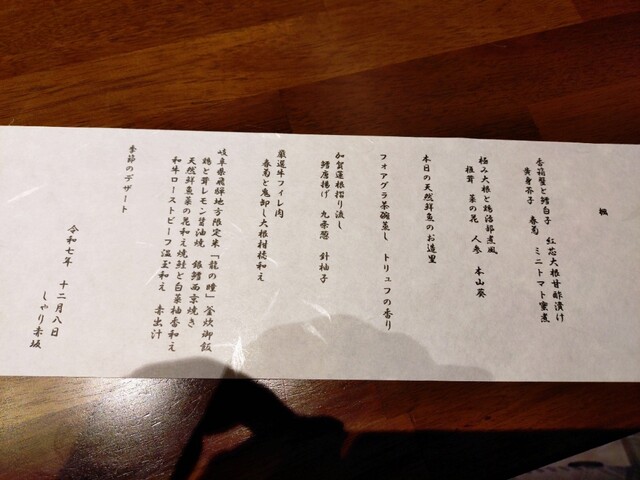 楓
香箱蟹と鱈白子　紅芯大根甘酢漬け
黄身芥子　春菊　ミニトマト蜜煮
極み大根と鶏治部煮風
椎茸　菜の花　人参　本山葵
本日の天然鮮魚のお造里
フォアグラ茶碗蒸し　トリュフの香り
加賀蓮根摺り流し
鱈唐揚げ　九条葱　針柚子
厳選牛フィレ肉
春菊と鬼卸し大根柑橘和え
岐阜県飛騨地方限定米「龍の瞳」釜炊御飯
鶏と茸レモン醤油焼　銀鱈西京焼き
天然鮮魚菜の花和え焼鮭と白菜柚香和え
和牛ローストビーフ温玉和え　赤出汁
季節のデザート
令和七年　十二月八日
しゃり赤坂